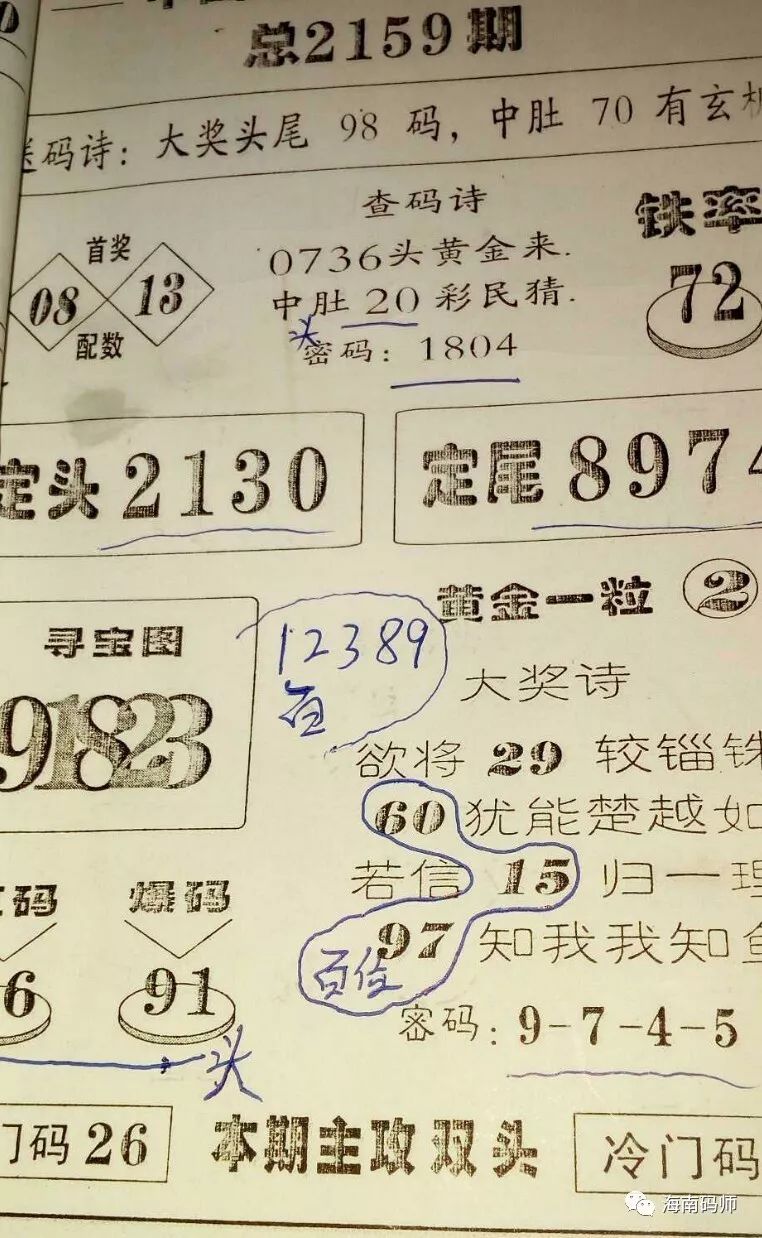 总2159期
送码诗：大奖头尾 98 码，中肚 70 有玄机
首奖
08 13
配数
查码诗
0736头黄金来.
中肚 20 彩民猜.
头
密码：1804
铁率
72
定头 2130
定尾 8974
寻宝图
91823
12389
百
黄金一粒 2
大奖诗
欲将 29 较锱铢
60 犹能楚越如
若信 15 归一理
97 知我我知鱼
百位
密码：9-7-4-5
码
爆码
6
91
头
门码 26
本期主攻双头
冷门码
海南码师